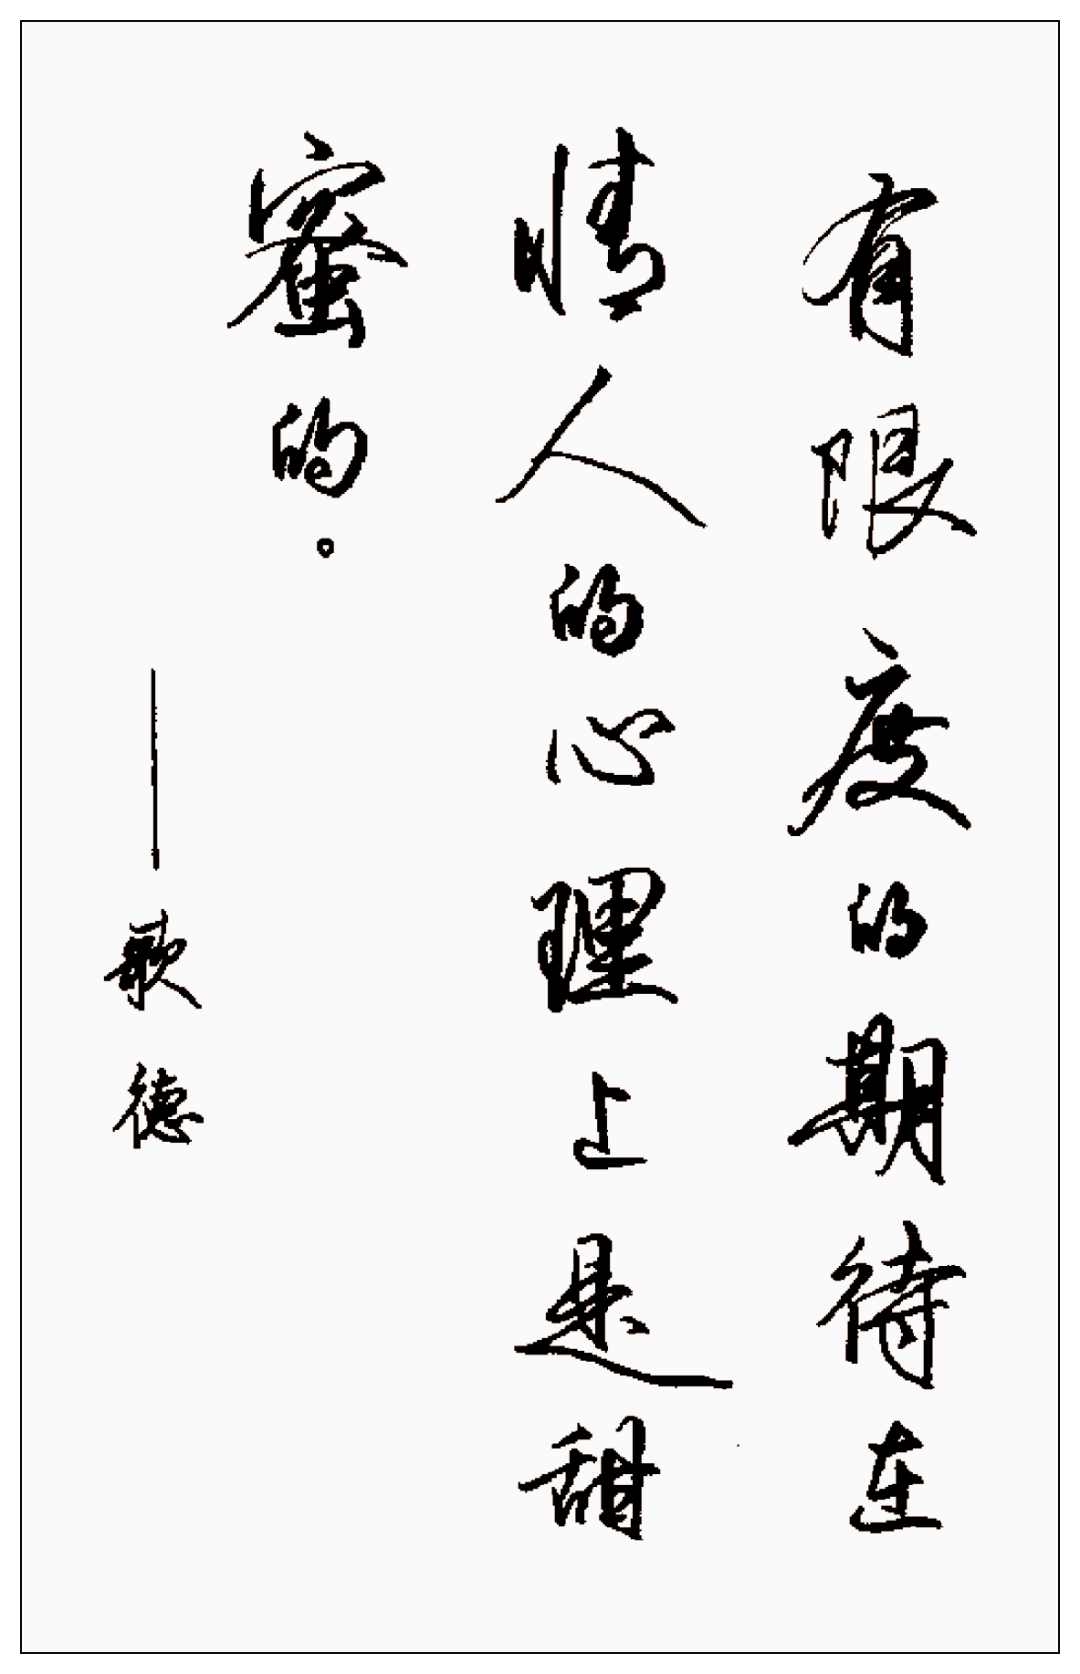 有限度的期待在
情人的心理上是甜
蜜的。
——歌德